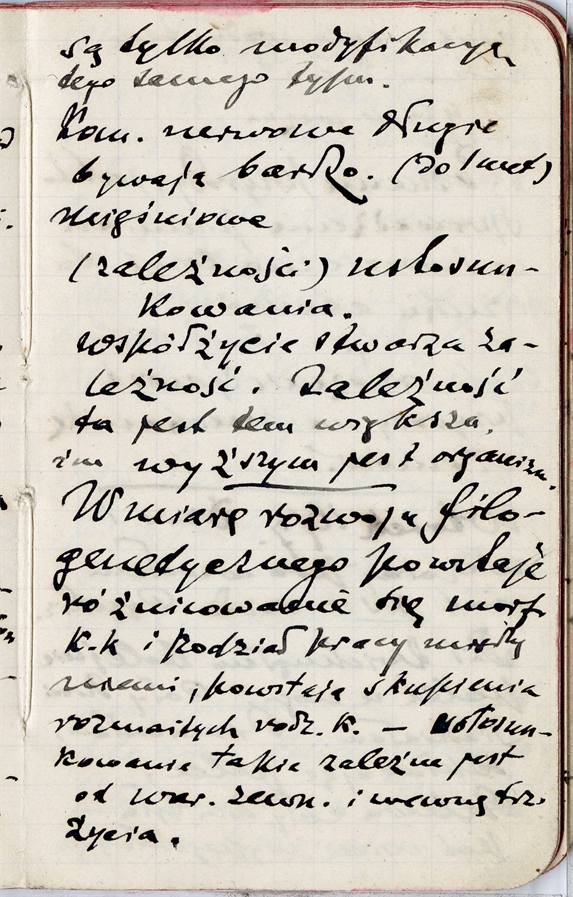 są tylko modyfikacyą
tego samego typu.
Kom. nerwowe długie
bywają bardzo. (do 1 met)
mięśniowe
(zależności) ustosun-
kowania.
współżycie stwarza za-
leżność. Zależność
ta jest tem większa,
im wyższym jest organizm.
W miarę rozwoju filo-
genetycznego powstaje
różnicowanie się morf.
k.k i podział pracy między
niemi, powstają skupienia
rozmaitych rodz. k. — ustosun-
kowanie takie zależne jest
od war. zewn. i wewnętrz.
życia.